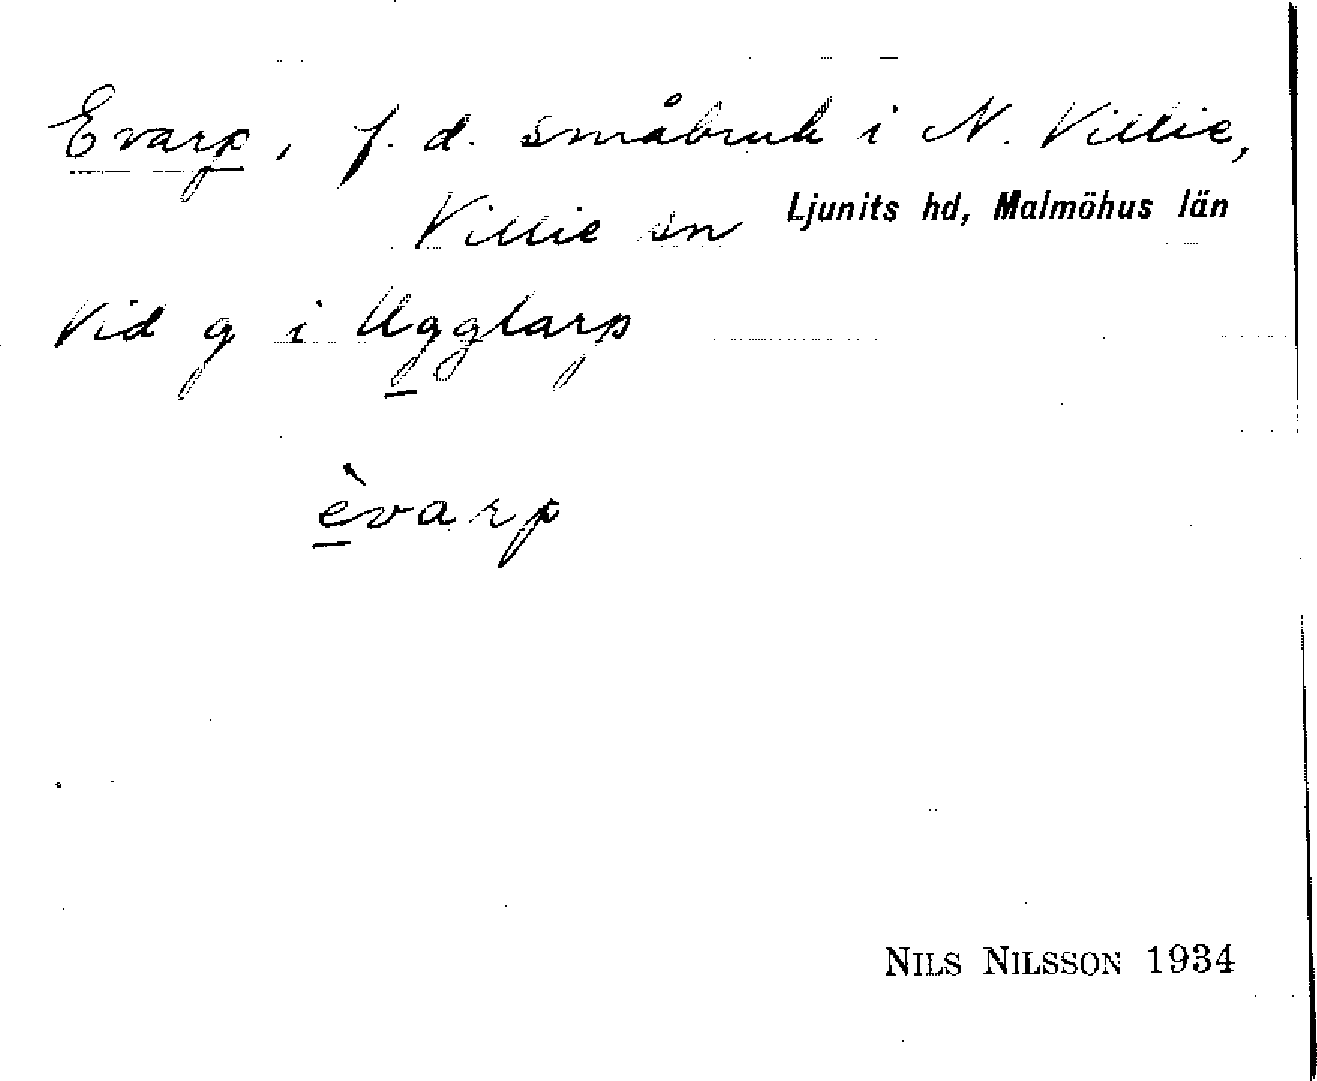 Evarp, f. d. småbruk i N. Villie,
Villie sn Ljunits hd, Malmöhus län
Vid g i Ugglarp
èvarp
NILS NILSSON 1934